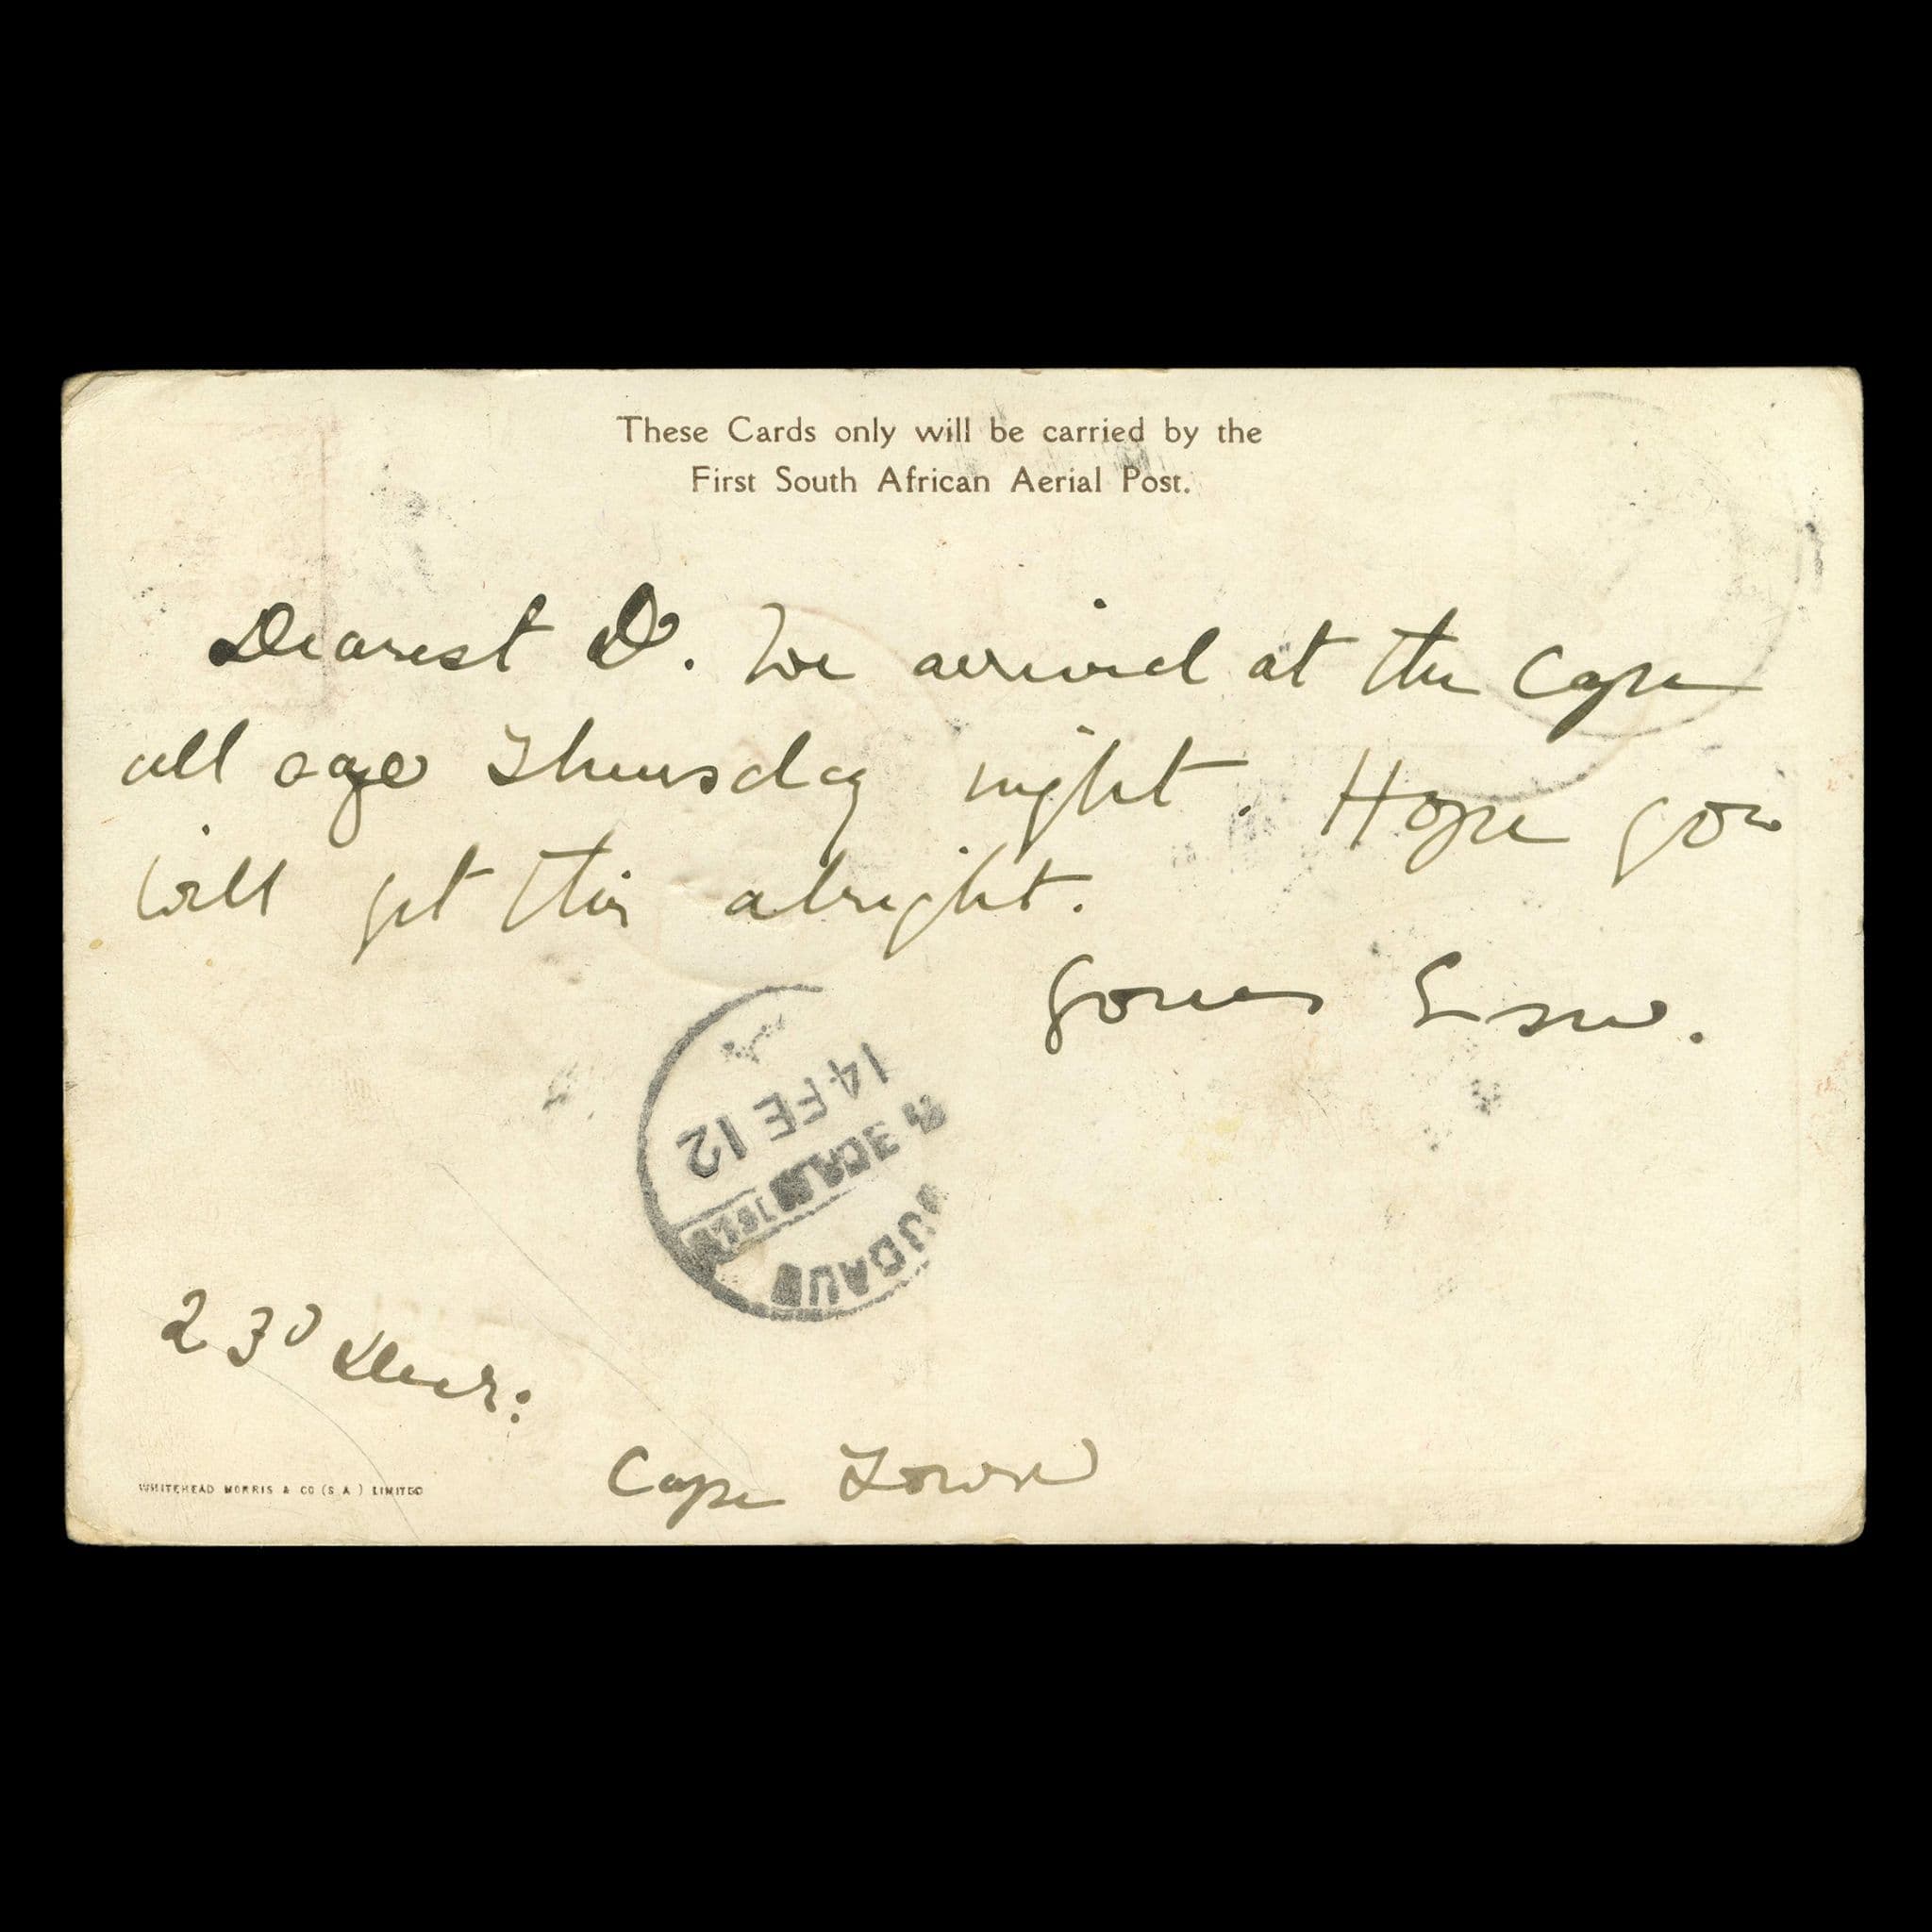 These Cards only will be carried by the
First South African Aerial Post.
Dearest D. We arrived at the Cape
all Thursday night. Hope you
will get this alright.
Yours
14 FE 12
23D Decr:
Cape Town
WHITEHEAD MORRIS & CO (S.A.) LIMITED